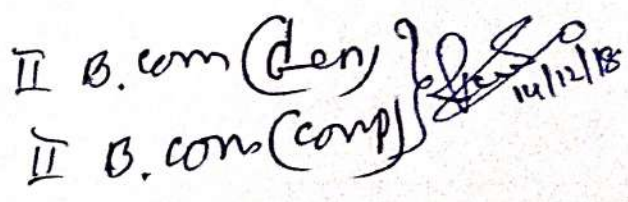 II B.com (Gen)
II B.com (comp)
14/12/18